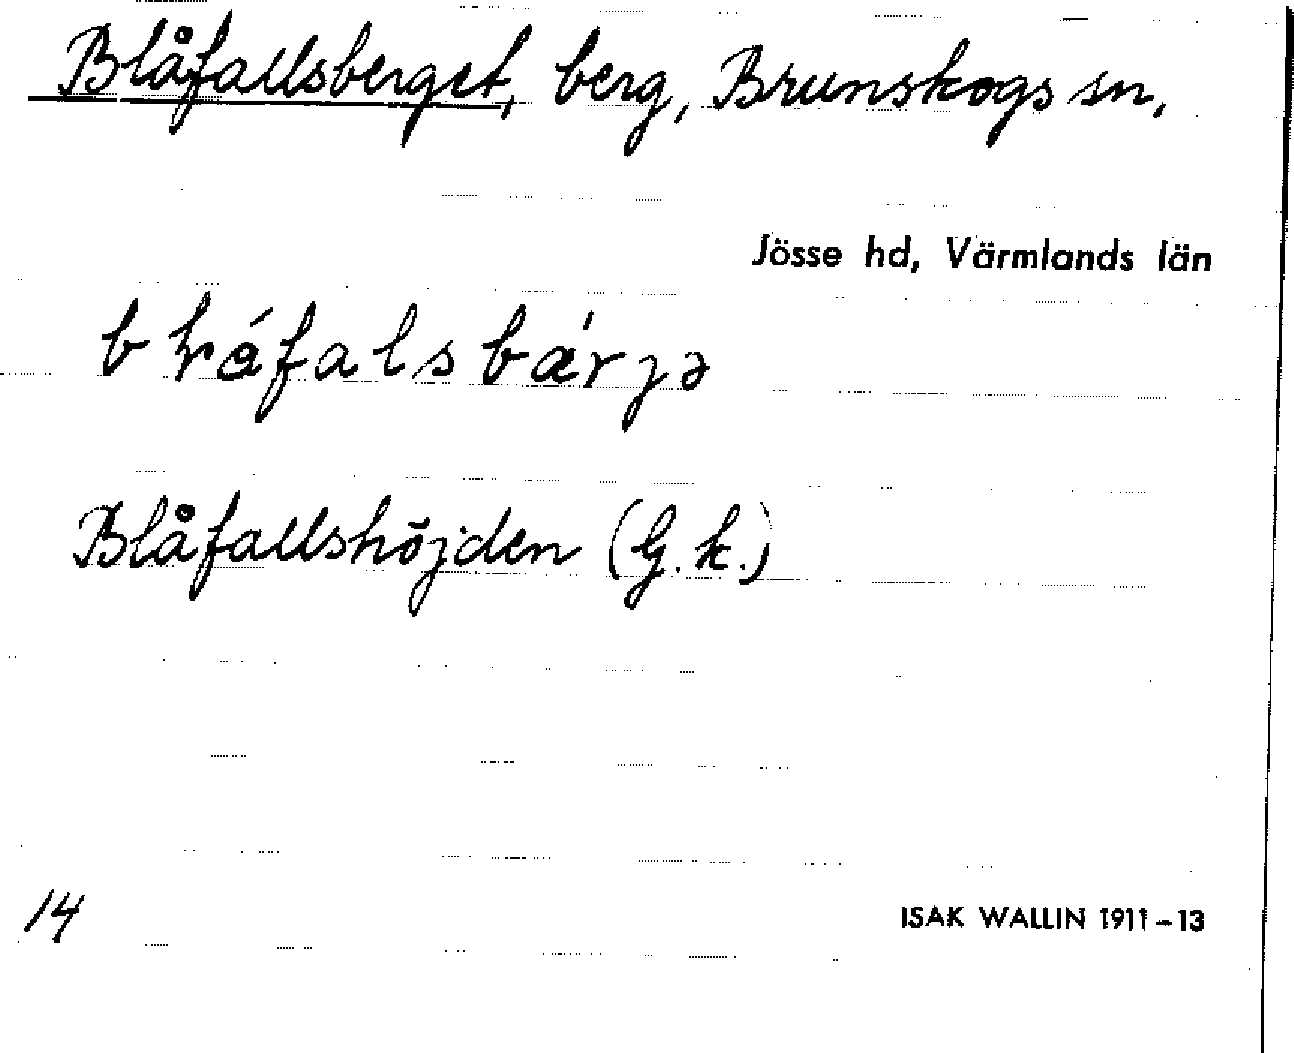 Blåfallsberget, berg, Brunskogs sn.
Jösse hd, Värmlands län
Blåfallshöjden (G.k.)
14
ISAK WALLIN 1911–13